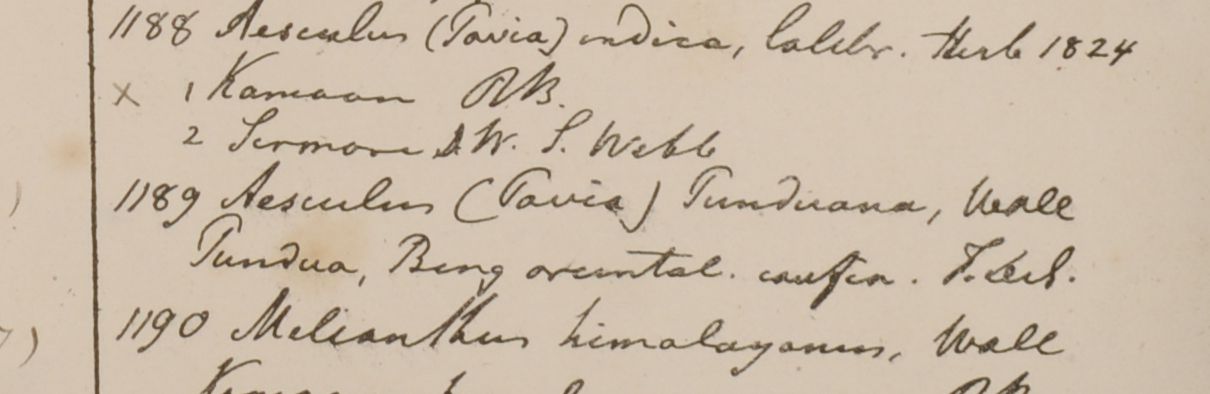 1188 Aesculus (Pavia) indica, Colebr. Herb 1824
x 1 Kamaon RB.
2 Sermore W. S. Webb
1189 Aesculus (Pavia) Punduana, Wall
Pundua, Beng oriental. confin. F. de S.
1190 Melianthus himalayanus, Wall